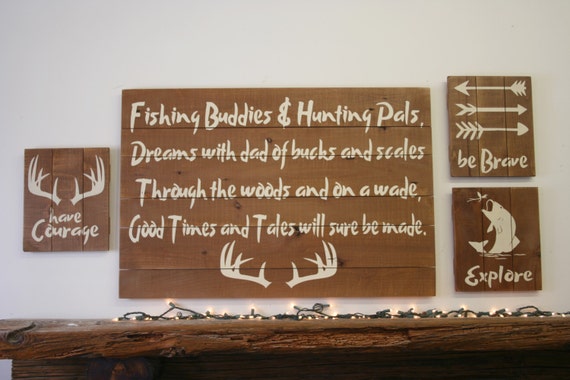 have
Courage
Fishing Buddies & Hunting Pals,
Dreams with dad of bucks and scales
Through the woods and on a wade,
Good Times and Tales will sure be made.
be Brave
Explore